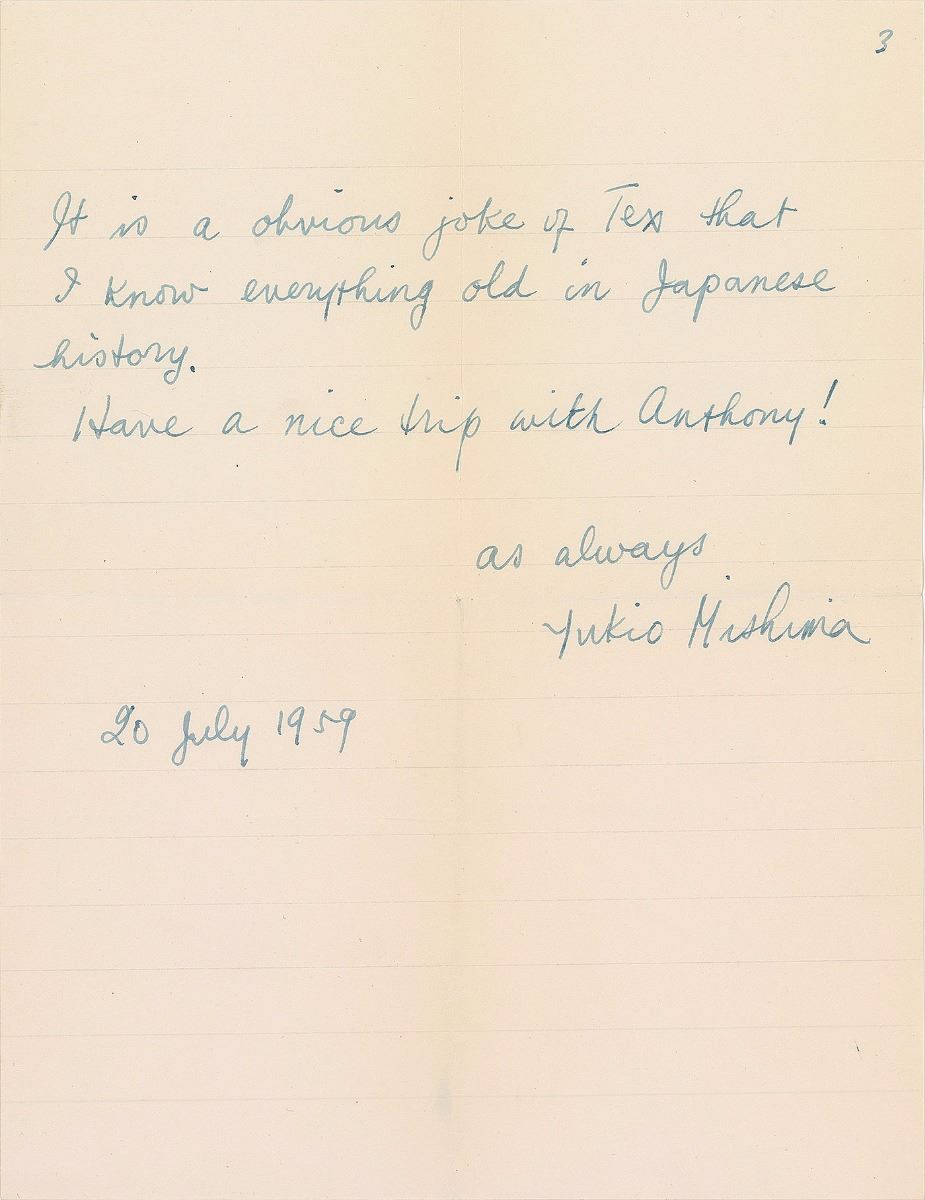 3
It is a obvious joke of Tex that
I know everything old in Japanese
history.
Have a nice trip with Anthony!
as always
Yukio Mishima
20 July 1959